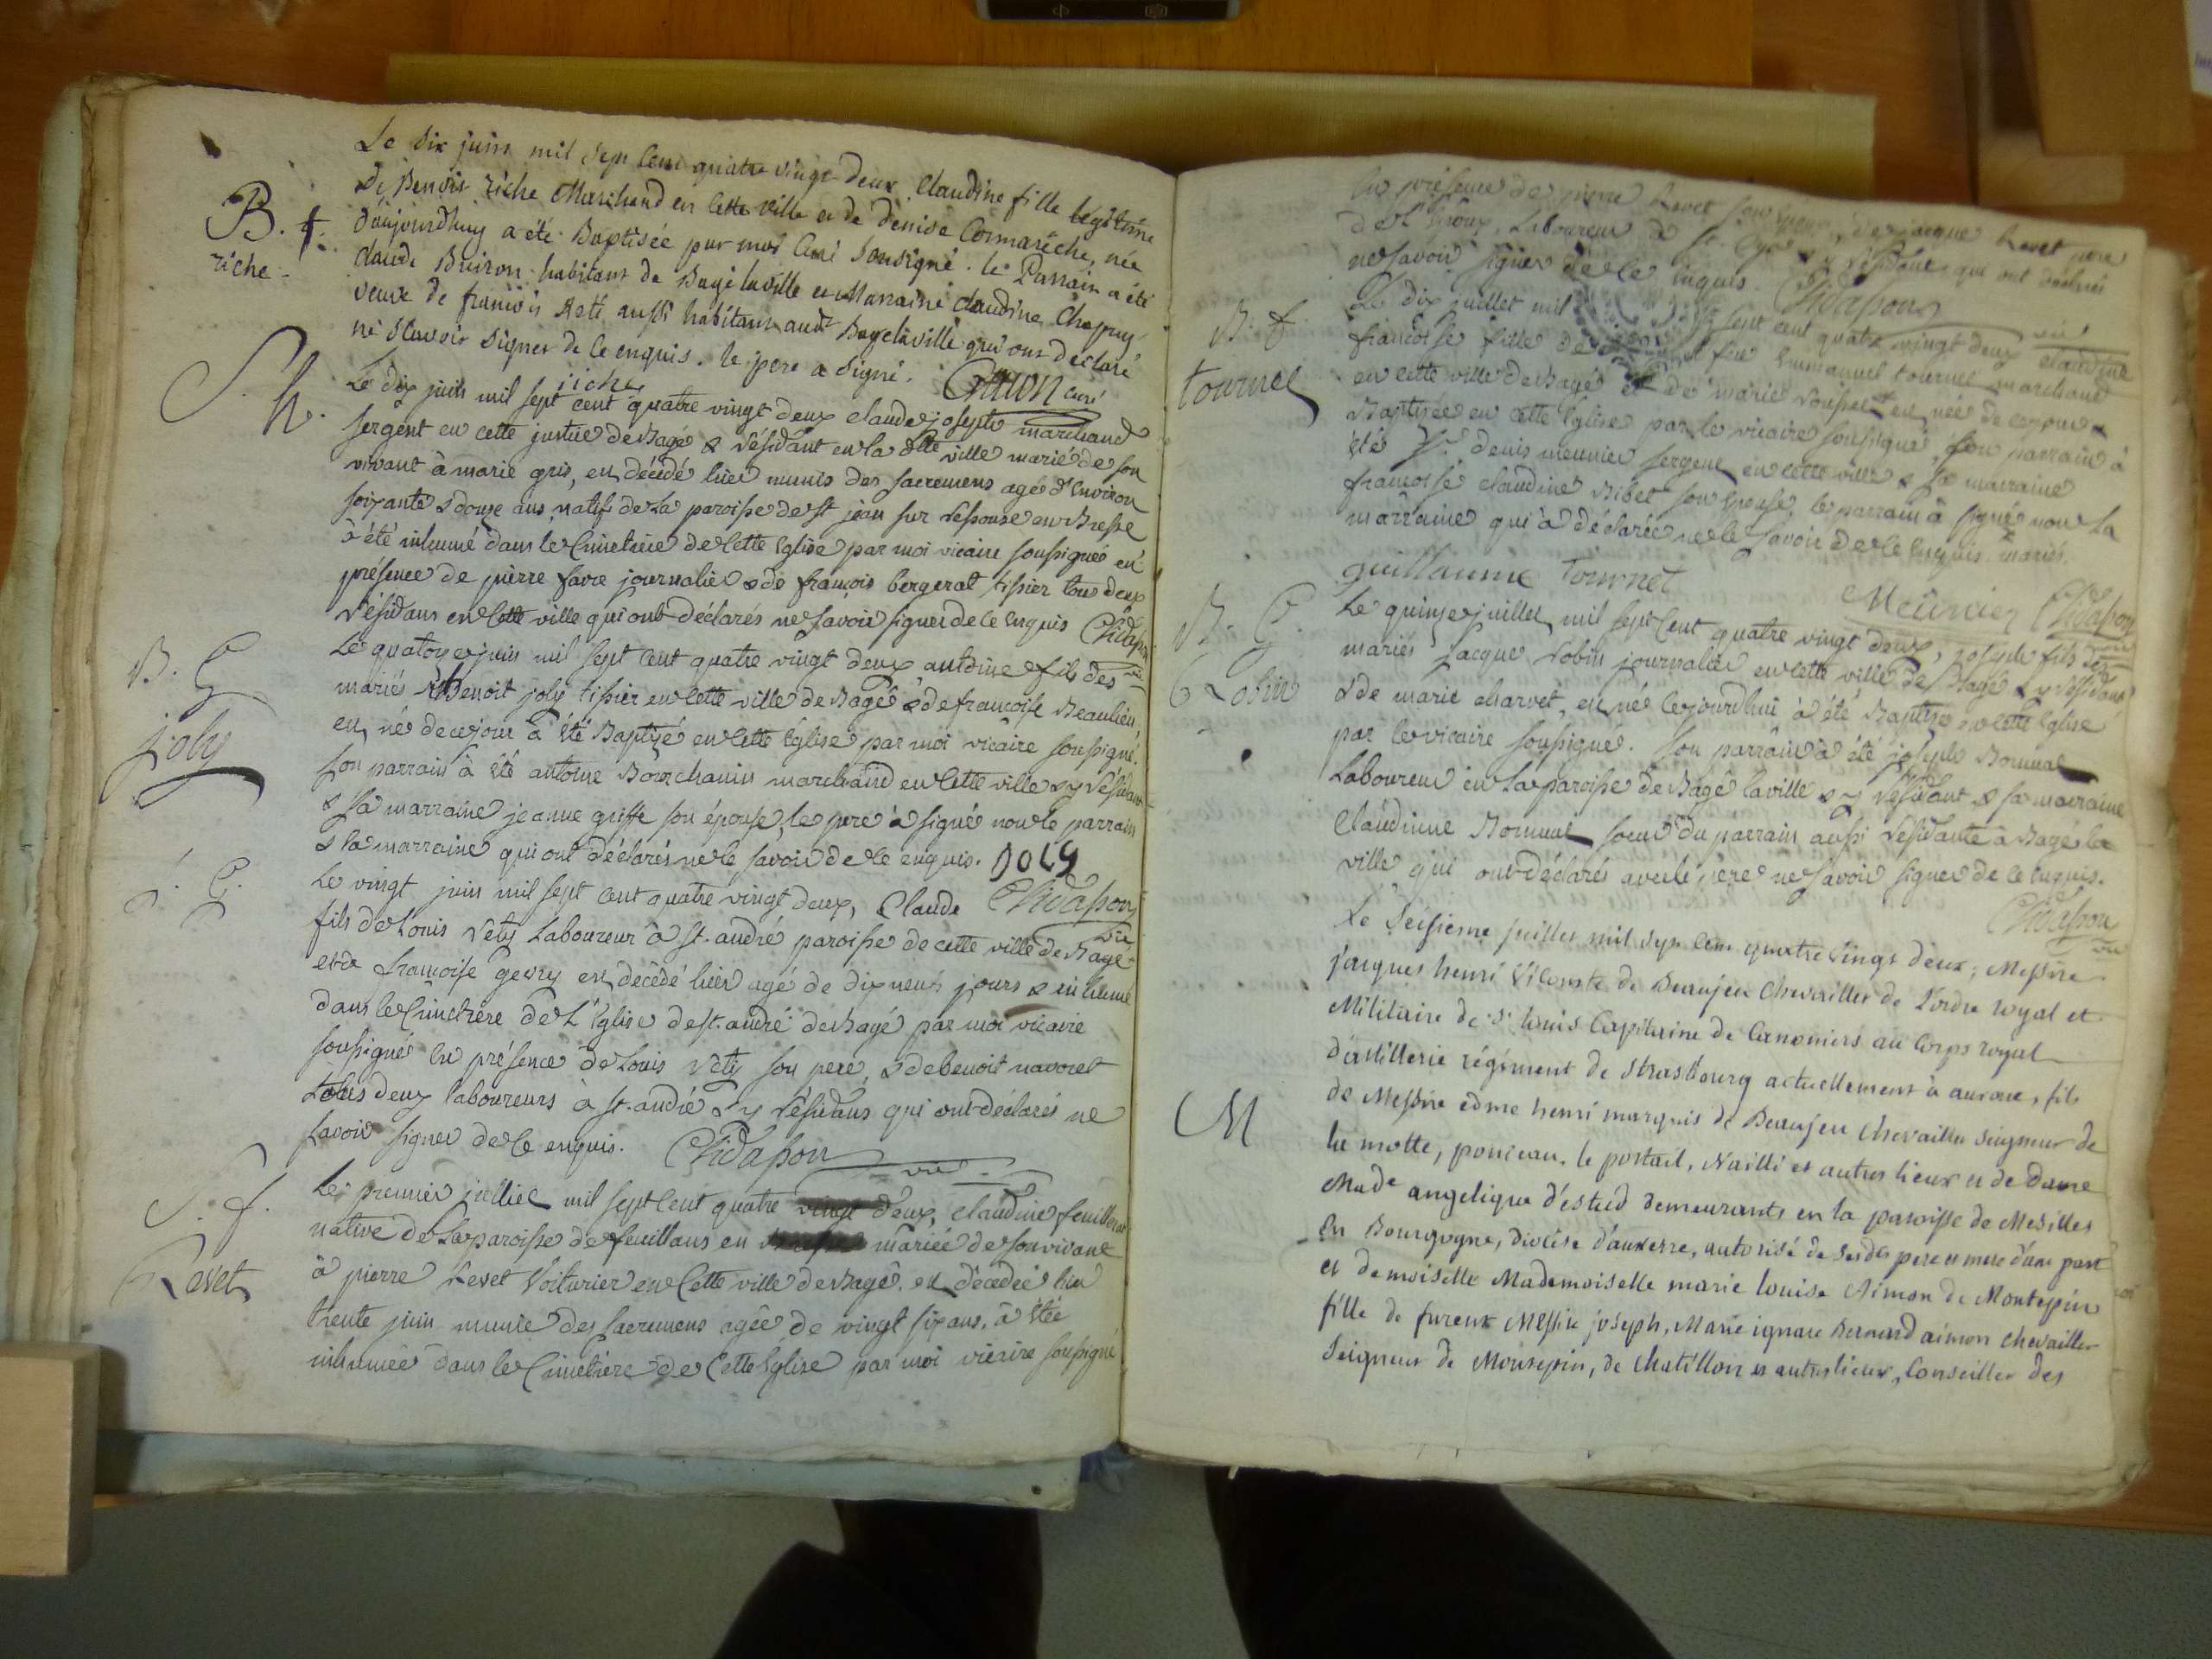 Le six juin mil sept cent quatre vingt deux Claudine fille légitime
de Benoit riche Marchand en cette ville et de denise Cormareche, née
B. f.
riche
d'aujourdhuy a été Baptisée par moi Curé soussigné. le Parrain a été
claude Buiron habitant de Bagé la ville et Marraine claudine Chapuy
veuve de francois Reti aussi habitant audt Bagélaville qui ont déclaré
ne scavoir signer de ce enquis. le pere a signé.
riche curé
S. h.
Le dix juin mil sept cent quatre vingt deux claude joseph marchand
sergent en cette justice de Bagé & résidant en la dte ville marié de son
vivant à marie gris, est décédé hier munis des sacremens agé d'environ
soixante & douze ans, natif de la paroisse de st jean sur resouse en Bresse
à été inhumé dans le Cimetiere de cette Eglise par moi vicaire soussigné en
présence de pierre favre journalier & de françois bergerat tissier tous deux
résidans en cette ville qui ont déclarés ne savoir signer de ce enquis Chidasson
vic
B. G
joly
Le quatorze juin mil sept cent quatre vingt deux antoine fils des
mariés Benoit joly tissier en cette ville de Bagé & de francoise Beaulieu,
est né de ce jour à été Baptizé en cette Eglise par moi vicaire soussigné.
son parrain à été antoine Bourchanin marchand en cette ville & y résidant
& sa marraine jeanne griffe son épouse, le pere à signé non le parrain
& la marraine qui ont déclarés ne le savoir de ce enquis. JOLY
Chidasson
vic
S. G.
Le vingt juin mil sept cent quatre vingt deux, Claude
fils de Louis Vety Laboureur à st. andré paroisse de cette ville de Bagé
et de francoise gevry est décédé hier agé de dix neuf jours & inhumé
dans le Cimetiere de L'Eglise de st. andré de Bagé par moi vicaire
soussigné en présence de Louis Vety son pere, & de benoit navoret
tous deux laboureurs à st. andré & y résidans qui ont déclarés ne
savoir signer de ce enquis. Chidasson
vic
S. f.
Revet
Le premier juillet mil sept cent quatre vingt deux, claudine feuillerat
native de la paroisse de feuillans en mariée de son vivant
à pierre Revet Voiturier en cette ville de Bagé, est décédée hier
trente juin munie des sacremens agée de vingt six ans, à été
inhumée dans le Cimetiere de Cette Eglise par moi vicaire soussigné
en présence de pierre Revet son epoux, de jacque Revet pere
de L'époux, Laboureur à st. Cyr & y résidant qui ont déclarés
ne savoir signer de ce enquis. Chidasson
vic
B. f.
tournel
Le dix juillet mil sept cent quatre vingt deux claudine
francoise fille de Emmanuel tournel marchand
en cette ville de Bagé & de marie est née de ce jour &
Baptisée en cette Eglise par le vicaire soussigné, son parrain à
été Sr. denis meunier sergent en cette ville & sa marraine
francoise claudine Ribet son epouse, le parrain à signé non la
marraine qui à déclarée ne le savoir de ce enquis. mariés
guillaume tournel
Meünier Chidasson
vic
B. G.
Robin
Le quinze juillet mil sept cent quatre vingt deux, joseph fils des
mariés jacque robin journalier en cette ville de Bagé & y résidant
& de marie charvet, est né ce jourdhui à été Baptisé en cette Eglise
par le vicaire soussigné. son parrain à été joseph Bonnat
Laboureur en la paroisse de Bagé la ville & y résidant & sa marraine
Claudinne Bonnat soeur du parrain aussi résidante à Bagé la
ville qui ont déclarés avec le pere ne savoir signer de ce enquis.
Chidasson
vic
M
Le seisieme juillet mil sept cent quatre vingt deux, Messire
jacques henri Vicomte de Beaujeu chevailler de l'ordre royal et
Militaire de st. louis Capitaine de Canoniers au Corps royal
d'artillerie régiment de strasbourg actuellement à auxone, fils
de Messire edme henri marquis de Beaujeu Chevailler Seigneur de
la motte, ponceau, le portail, Nailli et autres lieux et de Dame
Made angelique d'estud demeurants en la paroisse de Mesilles
en Bourgogne, diocèse d'auxerre, autorisé de sesdts pere et mere d'une part
et demoiselle Mademoiselle marie louise Aimon de Montepin
fille de fureux Messire joseph, Marie ignace Bernard aimon chevailler
Seigneur de Montepin, de Chatillon et autres lieux, Conseiller des